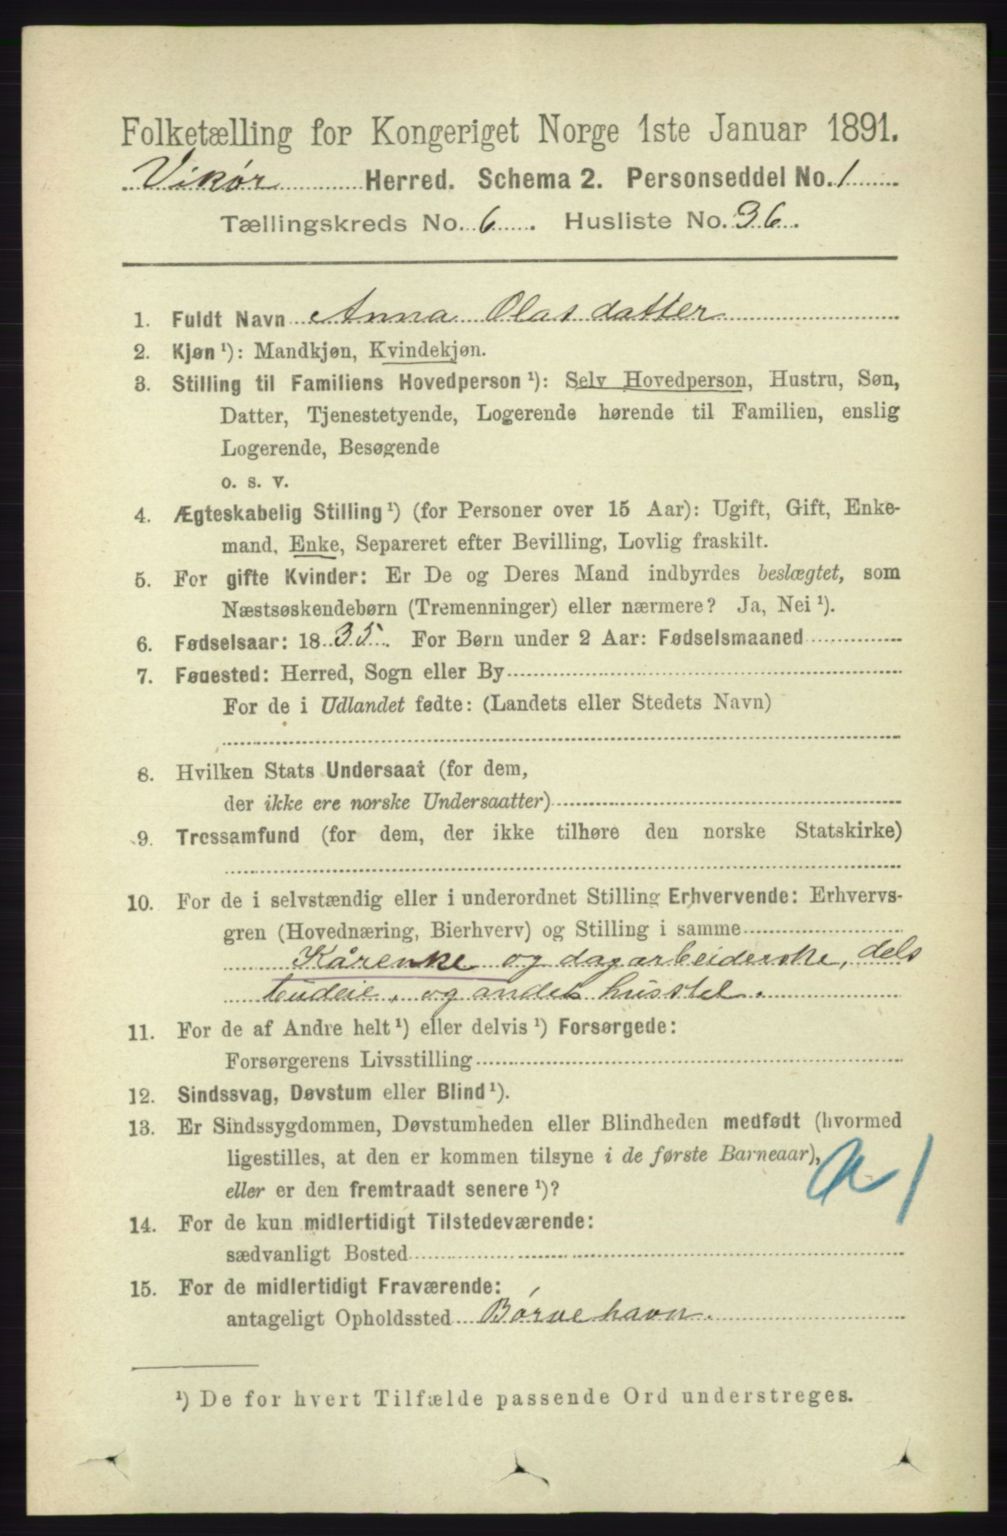 Folketælling for Kongeriget Norge 1ste Januar 1891.
Vikør Herred. Schema 2. Personseddel No. 1
Tællingskreds No. 6. Husliste No. 36.
1. Fuldt Navn Anna Olasdatter
2. Kjøn ¹): Mandkjøn, Kvindekjøn.
3. Stilling til Familiens Hovedperson ¹): Selv Hovedperson, Hustru, Søn,
Datter, Tjenestetyende, Logerende hørende til Familien, enslig
Logerende, Besøgende
o. s. v.
4. Ægteskabelig Stilling ¹) (for Personer over 15 Aar): Ugift, Gift, Enke-
mand, Enke, Separeret efter Bevilling, Lovlig fraskilt.
5. For gifte Kvinder: Er De og Deres Mand indbyrdes beslægtet, som
Næstsøskendebørn (Tremenninger) eller nærmere? Ja, Nei ¹).
6. Fødselsaar: 1835. For Børn under 2 Aar: Fødselsmaaned
7. Fødested: Herred, Sogn eller By
For de i Udlandet fødte: (Landets eller Stedets Navn)
8. Hvilken Stats Undersaat (for dem,
der ikke ere norske Undersaatter)
9. Trossamfund (for dem, der ikke tilhøre den norske Statskirke)
10. For de i selvstændig eller i underordnet Stilling Erhvervende: Erhvervs-
gren (Hovednæring, Bierhverv) og Stilling i samme
Kårenke og dagarbeiderske, dels
budeie, og andet husstel.
11. For de af Andre helt ¹) eller delvis ¹) Forsørgede:
Forsørgerens Livsstilling
12. Sindssvag, Døvstum eller Blind ¹).
13. Er Sindssygdommen, Døvstumheden eller Blindheden medfødt (hvormed
ligestilles, at den er kommen tilsyne i de første Barneaar),
eller er den fremtraadt senere ¹)?
14. For de kun midlertidigt Tilstedeværende:
sædvanligt Bosted
15. For de midlertidigt Fraværende:
antageligt Opholdssted Børvehavn.
¹) De for hvert Tilfælde passende Ord understreges.